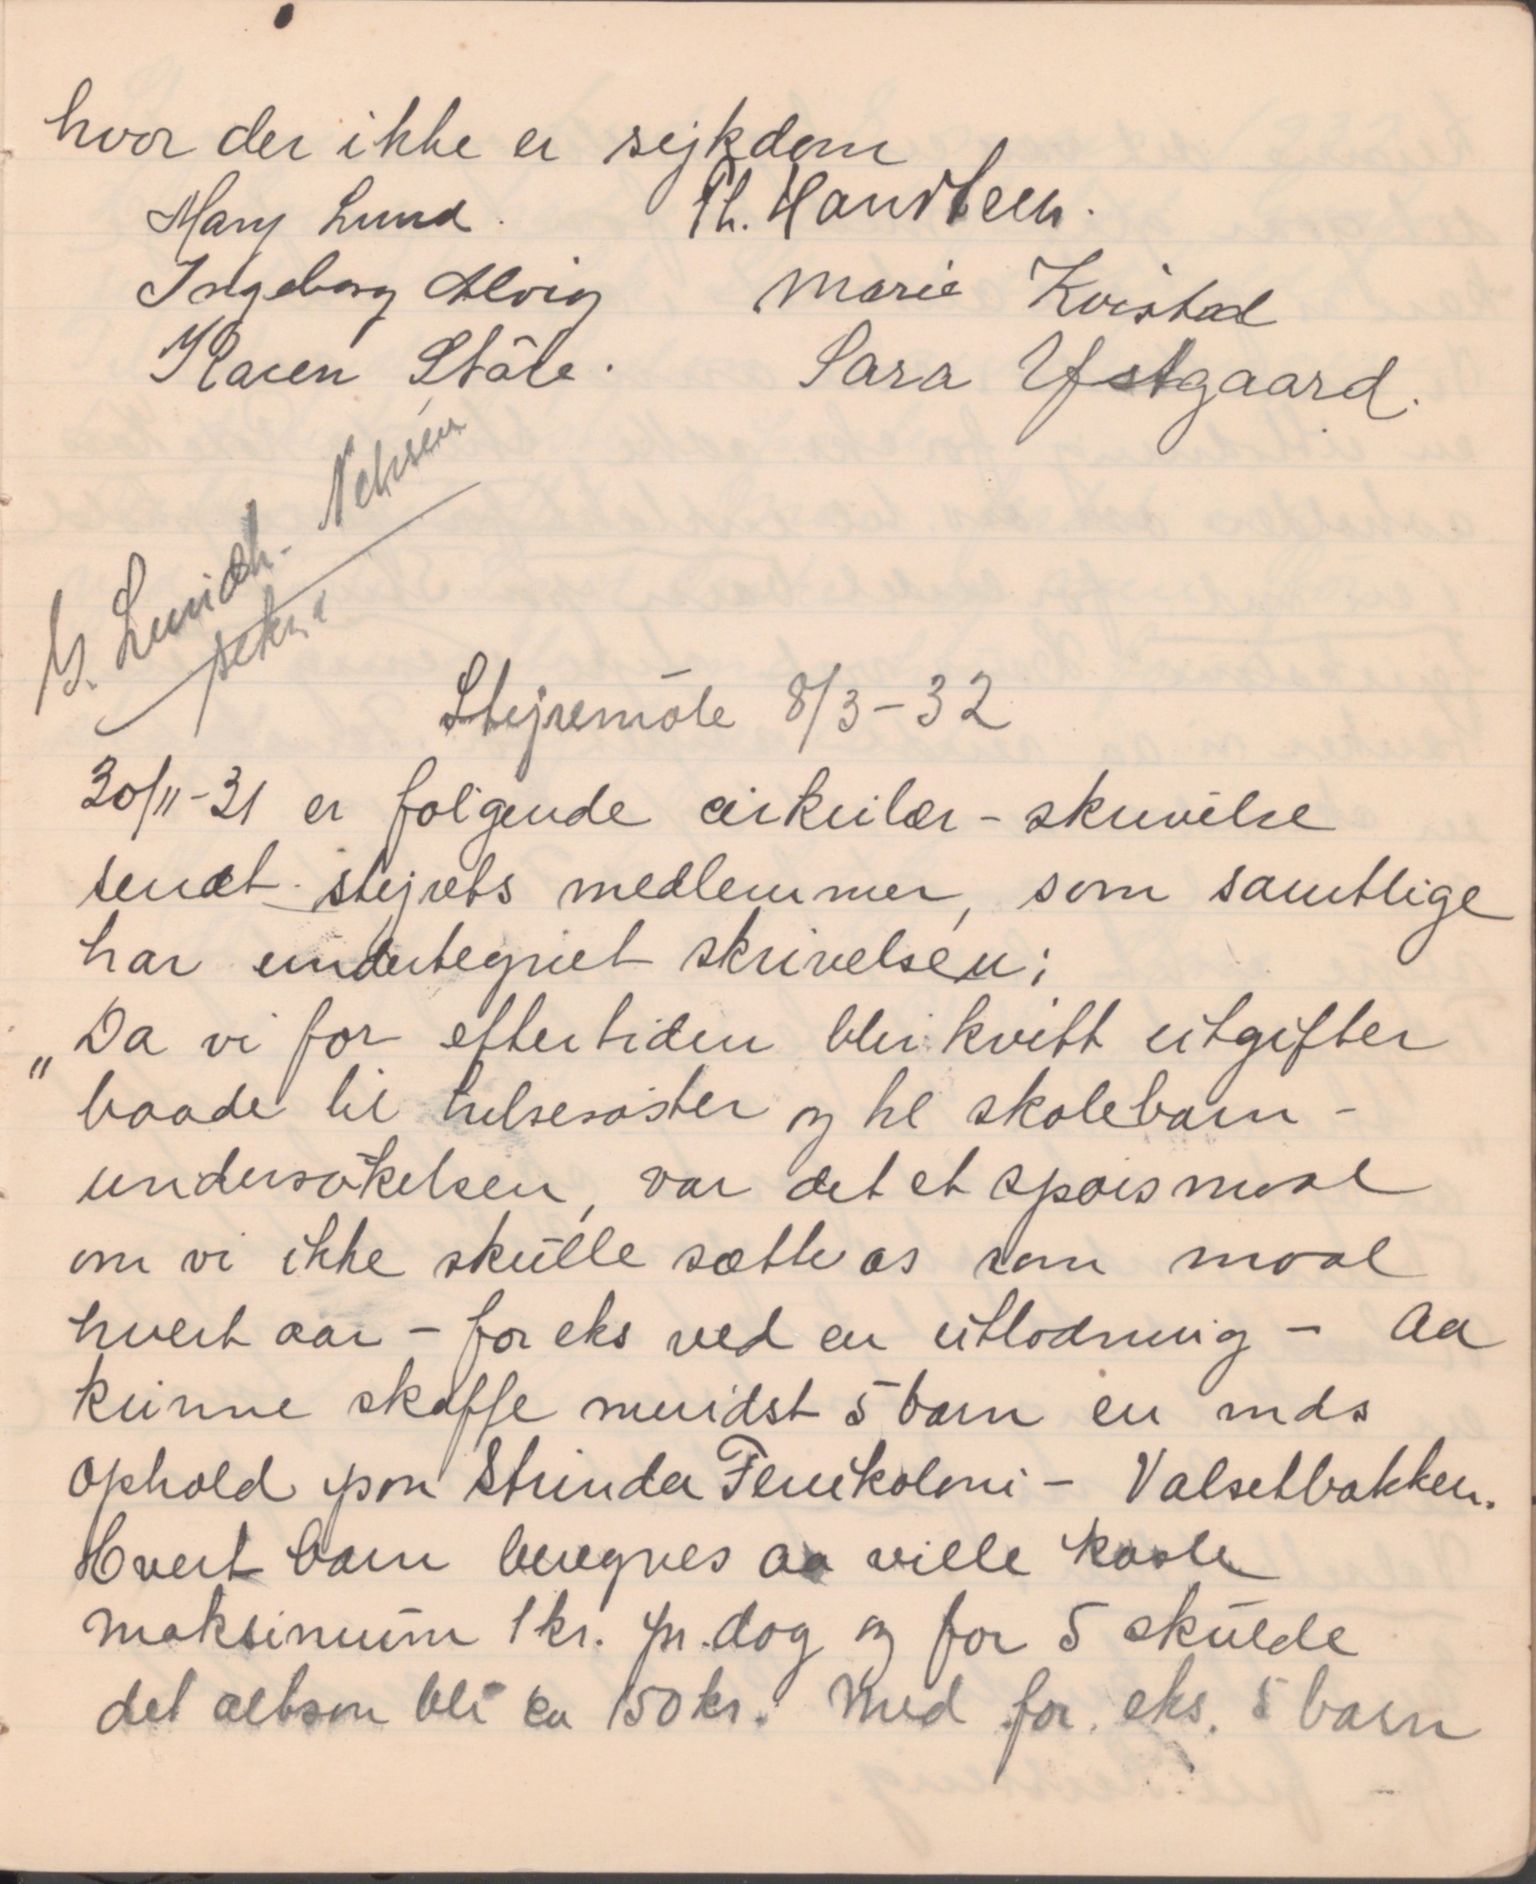 hvor der ikke er sejkdom
Mary Lund. Th. Haustveen.
Ingeborg Alvig Marie Kvistad
Karen Ståle. Sara Ystgaard.
G. Lund Nelsen
sekr.
Stejremöte 8/3-32
30/11-31 er følgende cirkulær-skrivelse
sendt stejrets medlemmer, som samtlige
har undertegnet skrivelsen;
„Da vi for eftertiden blir kvitt utgifter
baade til helsesøster og til skolebarn-
undersøkelsen, var det et spørsmaal
om vi ikke skulle sætte os som maal
hvert aar - for eks ved en utlodning - aa
kunne skaffe mindst 5 barn en mds
ophold paa Strinda Feriekoloni - Valsetbakken.
Hvert barn beregnes aa ville koste
maksimum 1 kr. pr. dag og for 5 skulde
det altsaa bli ca 150 kr. Med for eks. 5 barn